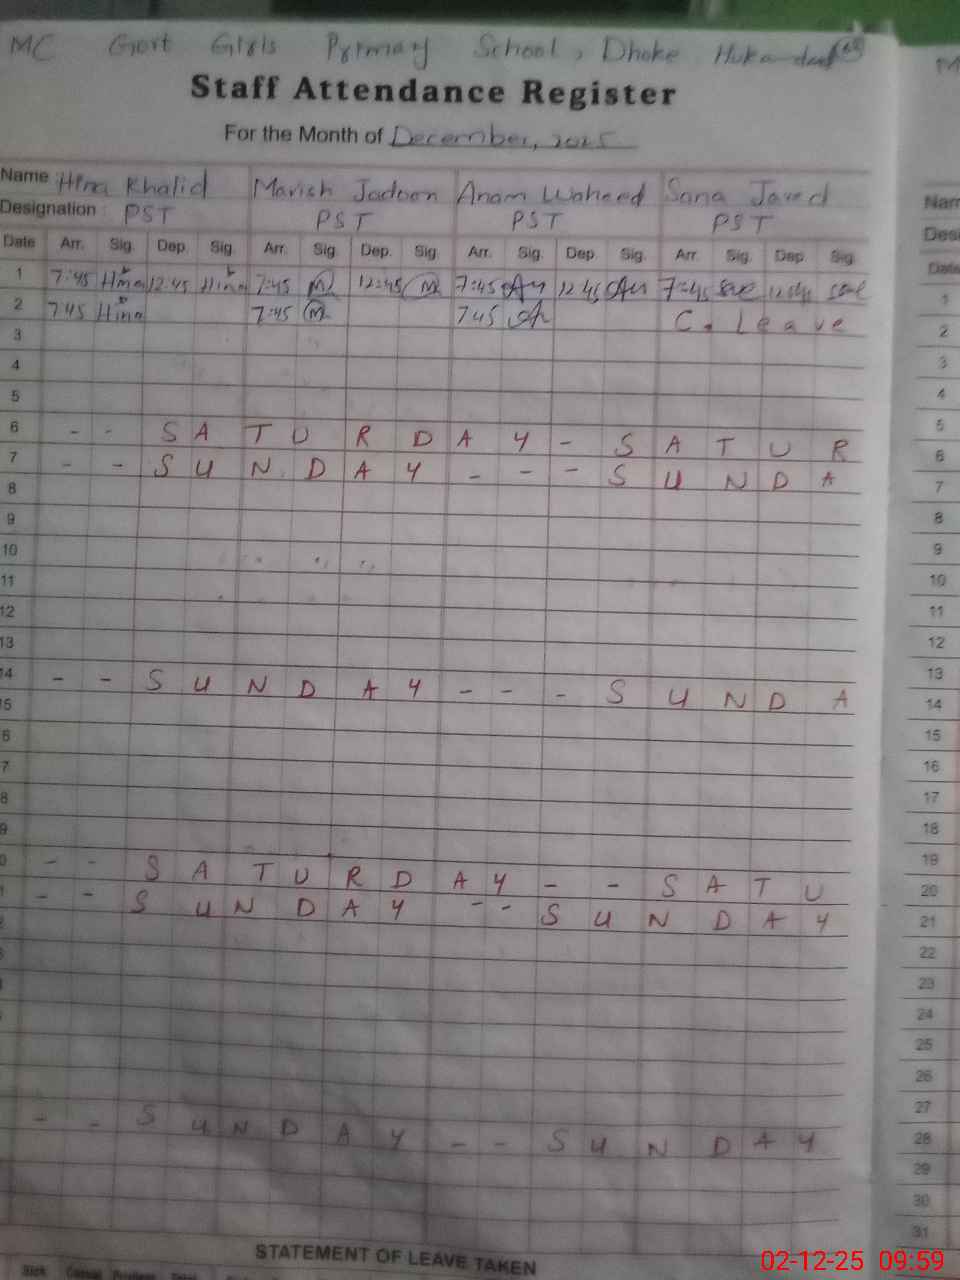 MC Govt Girls Primary School, Dhoke Hukamdad
Staff Attendance Register
For the Month of December, 2025
Name Hina Khalid Mavish Jadoon Anam Waheed Sana Javed
Designation PST PST PST PST
Date Arr. Sig. Dep. Sig. Arr. Sig. Dep. Sig. Arr. Sig. Dep. Sig. Arr. Sig. Dep. Sig.
1 7:45 Hina 12:45 Hina 7:45 12:45 7:45 12:45 7:45
2 7:45 Hina 7:45 7:45 C. Leave
3
4
5
6 - - S A T U R D A Y - S A T U R
7 - - S U N D A Y - - - S U N D A
8
9
10
11
12
13
14 - - S U N D A Y - - - S U N D A
5
6
7
8
9
0 - - S A T U R D A Y - - S A T U
1 - - S U N D A Y - - S U N D A Y
- - S U N D A Y - - S U N D A Y
STATEMENT OF LEAVE TAKEN
Sick Casual
M
Nam
Desi
Date
1
2
3
4
5
6
7
8
9
10
11
12
13
14
15
16
17
18
19
20
21
22
23
24
25
26
27
28
29
30
31
02-12-25 09:59